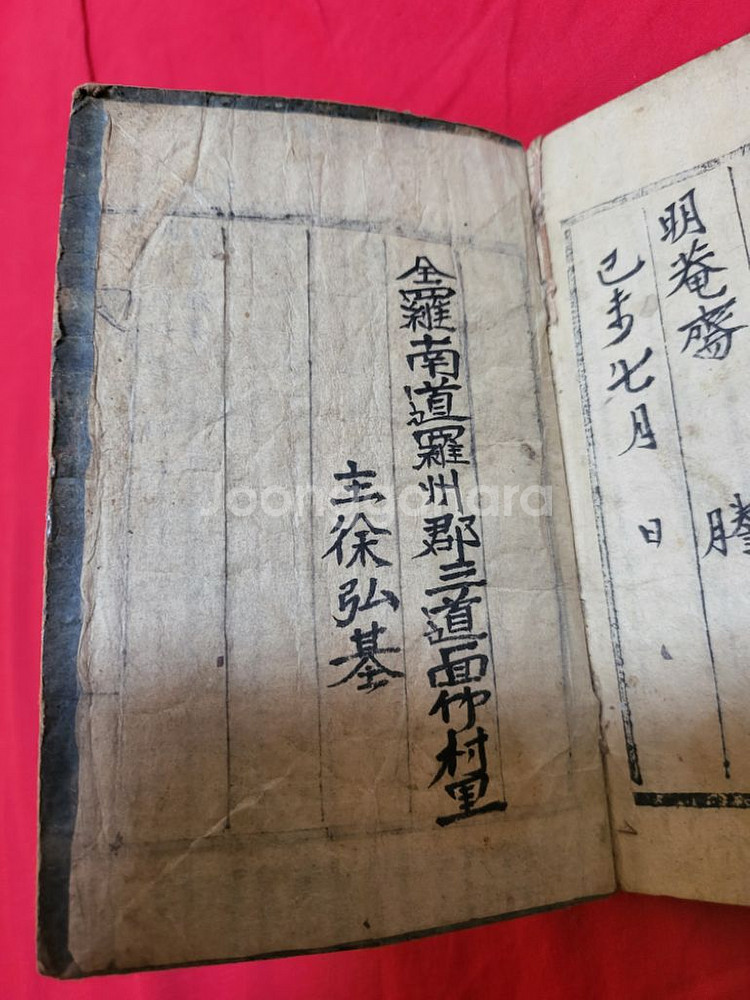 明菴齋
己未七月 日
全羅南道羅州郡三道面仲村里
主徐弘基
Joonggonara